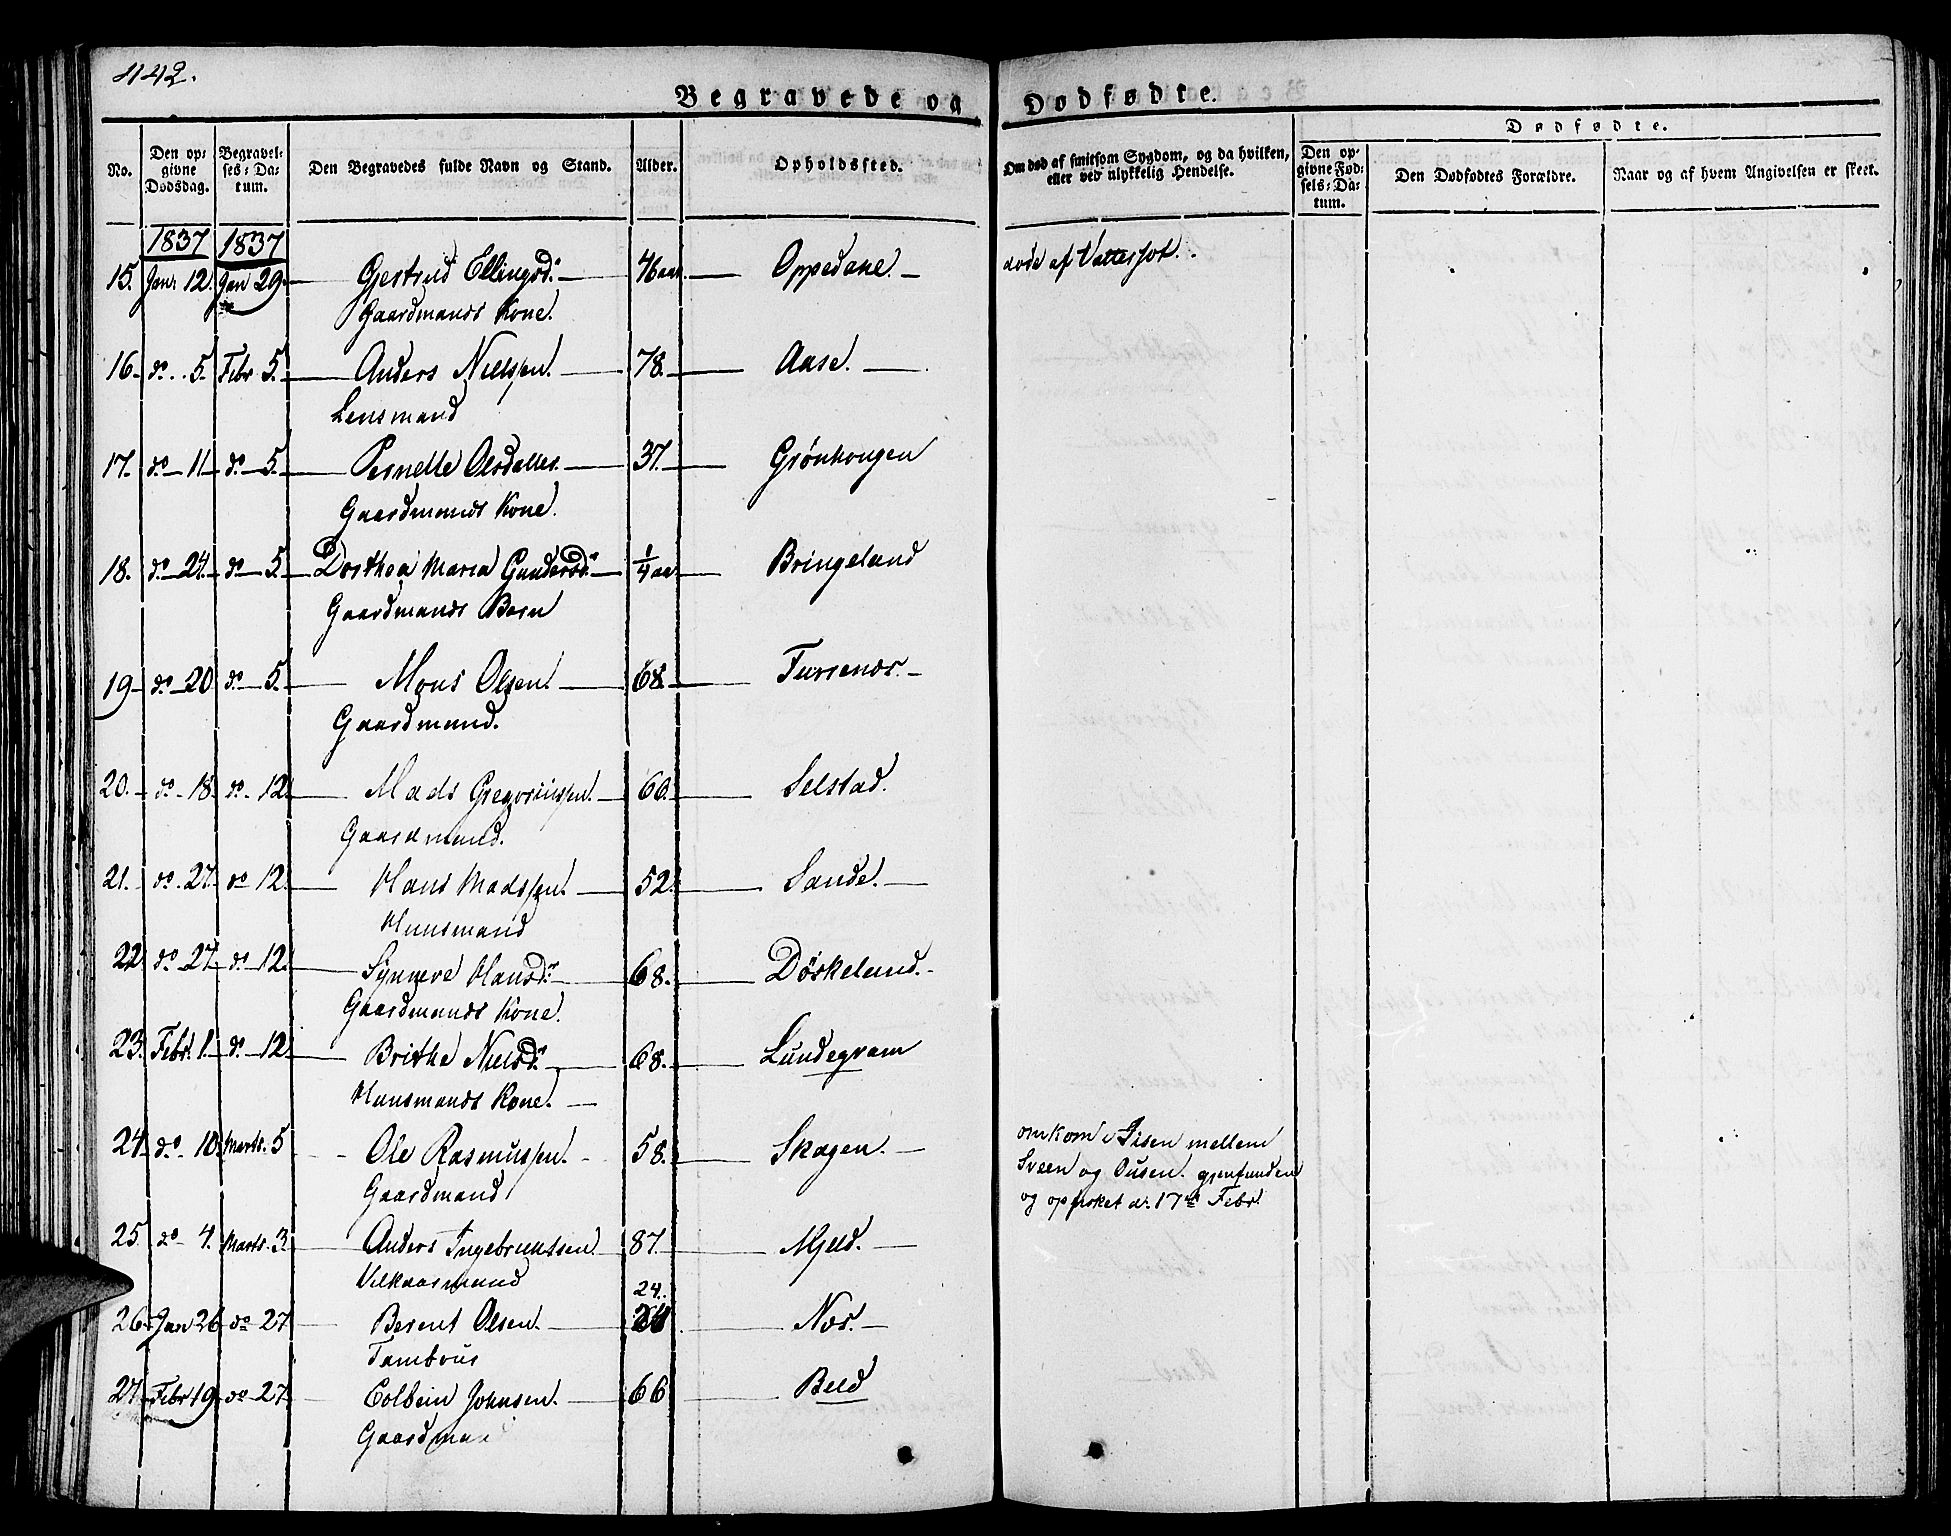 442.
Begravede og Dødfødte.
No. Den opgivne Dødsdag. Begravelses-Datum. Den Begravedes fulde Navn og Stand. Alder. Opholdssted. Om død af smitsom Sygdom, og da hvilken, eller ved ulykkelig Hendelse. Dødfødte. Den opgivne Fødsels-Datum. Den Dødfødtes Forældre. Naar og af hvem Angivelsen er skeet.
1837 1837
15. Jan: 12. Jan 29. Gjertrud Ellingsdr. 46 aar. Oppedane. døde af Vattersot.
Gaardmands Kone.
16. do. 5. Febr 5. Anders Nielssen. 78. Aase.
Lensmand
17. do 11 do 5. Pernelle Olsdatter. 37. Grønhougen
Gaardmands Kone.
18. do 24. do 5. Dorthea Maria Gundersdr. 1/4 aar Bringeland
Gaardmands Barn
19 do 20 do 5. Mons Olsen. 68. Furrenæs.
Gaardmand.
20. do 18. do 12. Mads Gregoriussen. 60. Selstad.
Gaardmand.
21. do. 27. do 12. Hans Madssen. 52. Sande.
Huusmand
22 do 27. do 12. Synneve Hansdr. 68. Døskeland.
Gaardmands Kone.
23. Febr. 1. do 12. Brithe Nielsdr. 68. Lundegram
Huusmands Kone.
24. do 10. Marts. 5 Ole Rasmussen. 58. Skagen. omkom i Iisen mellem
Sveen og Ousen. gjenfunden
og opfisket d. 17de Febr
Gaardmand
25 do 4. Marts. 3. Anders Ingebrigtsen 87. Mjeld.
Vilkaarsmand
24.
26. Jan 26 do 27 Berent Olsen. Nes.
Tambour
27. Febr 19. do 27. Colbein Johnsen. 66 Beld
Gaardman